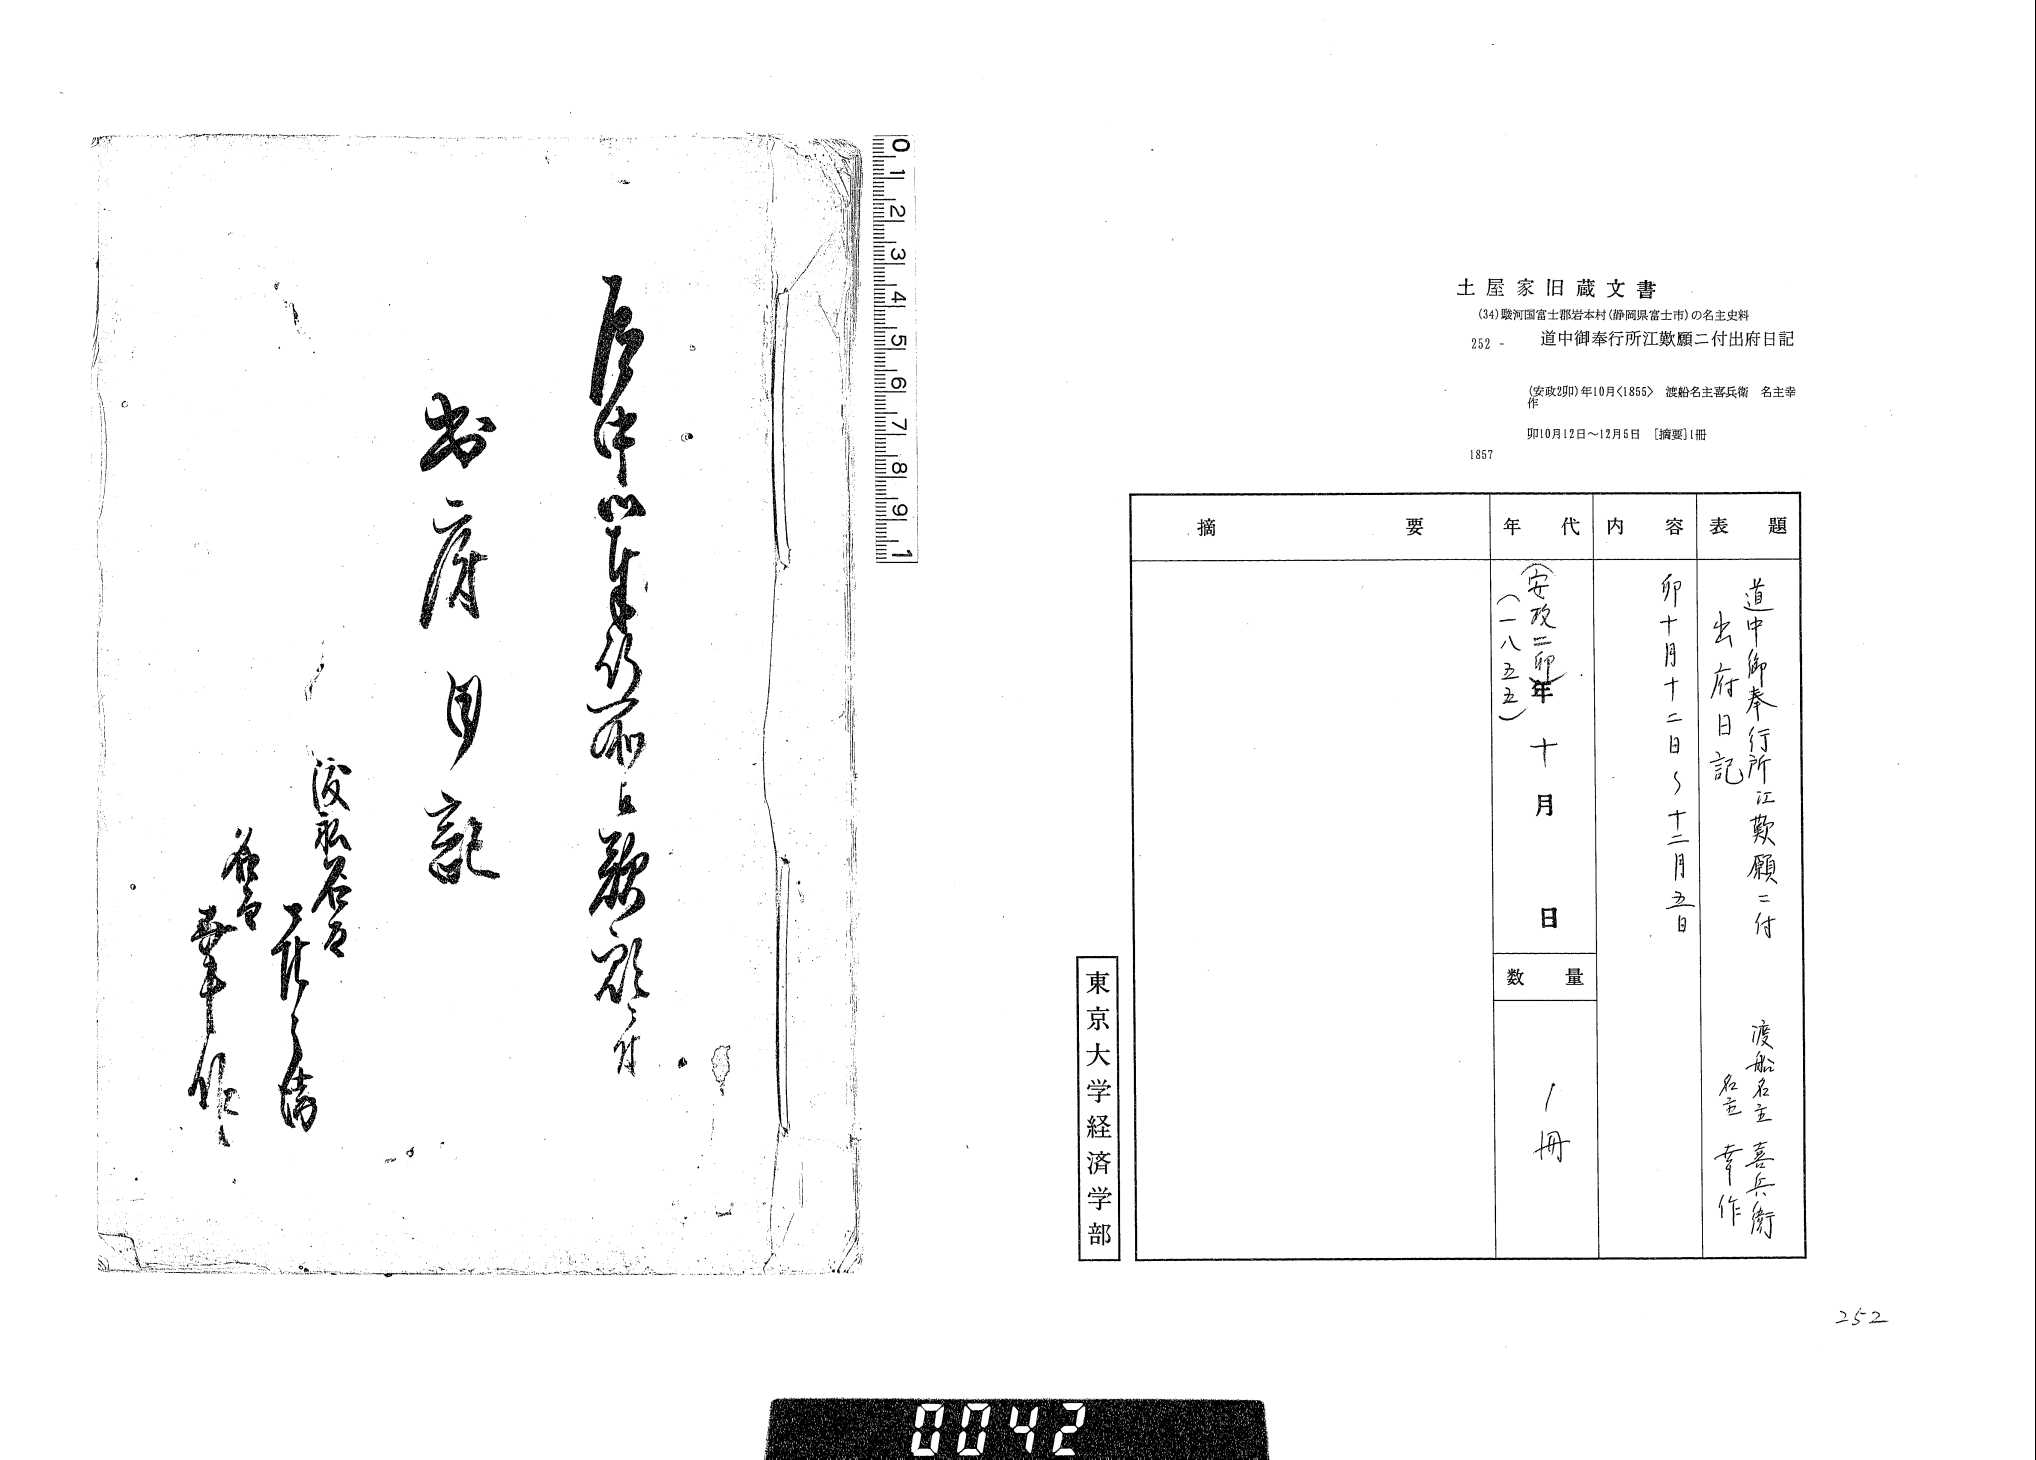 土屋家旧蔵文書
(34)駿河国富士郡岩本村(静岡県富士市)の名主史料
252 - 道中御奉行所江歎願ニ付出府日記
(安政2卯)年10月<1855> 渡船名主喜兵衛 名主幸
作
卯10月12日～12月5日 [摘要]1冊
1857
表題
道中御奉行所江歎願ニ付
出府日記
渡船名主 喜兵衛
名主 幸作
内容
卯十月十二日〜十二月五日
年代
(安政二卯)年十月 日
(一八五五)
数量
1冊
摘要
東京大学経済学部
252
道中御奉行所江歎願ニ付
出府日記
渡船名主
喜兵衛
名主
幸作
0 1 2 3 4 5 6 7 8 9 1
0042